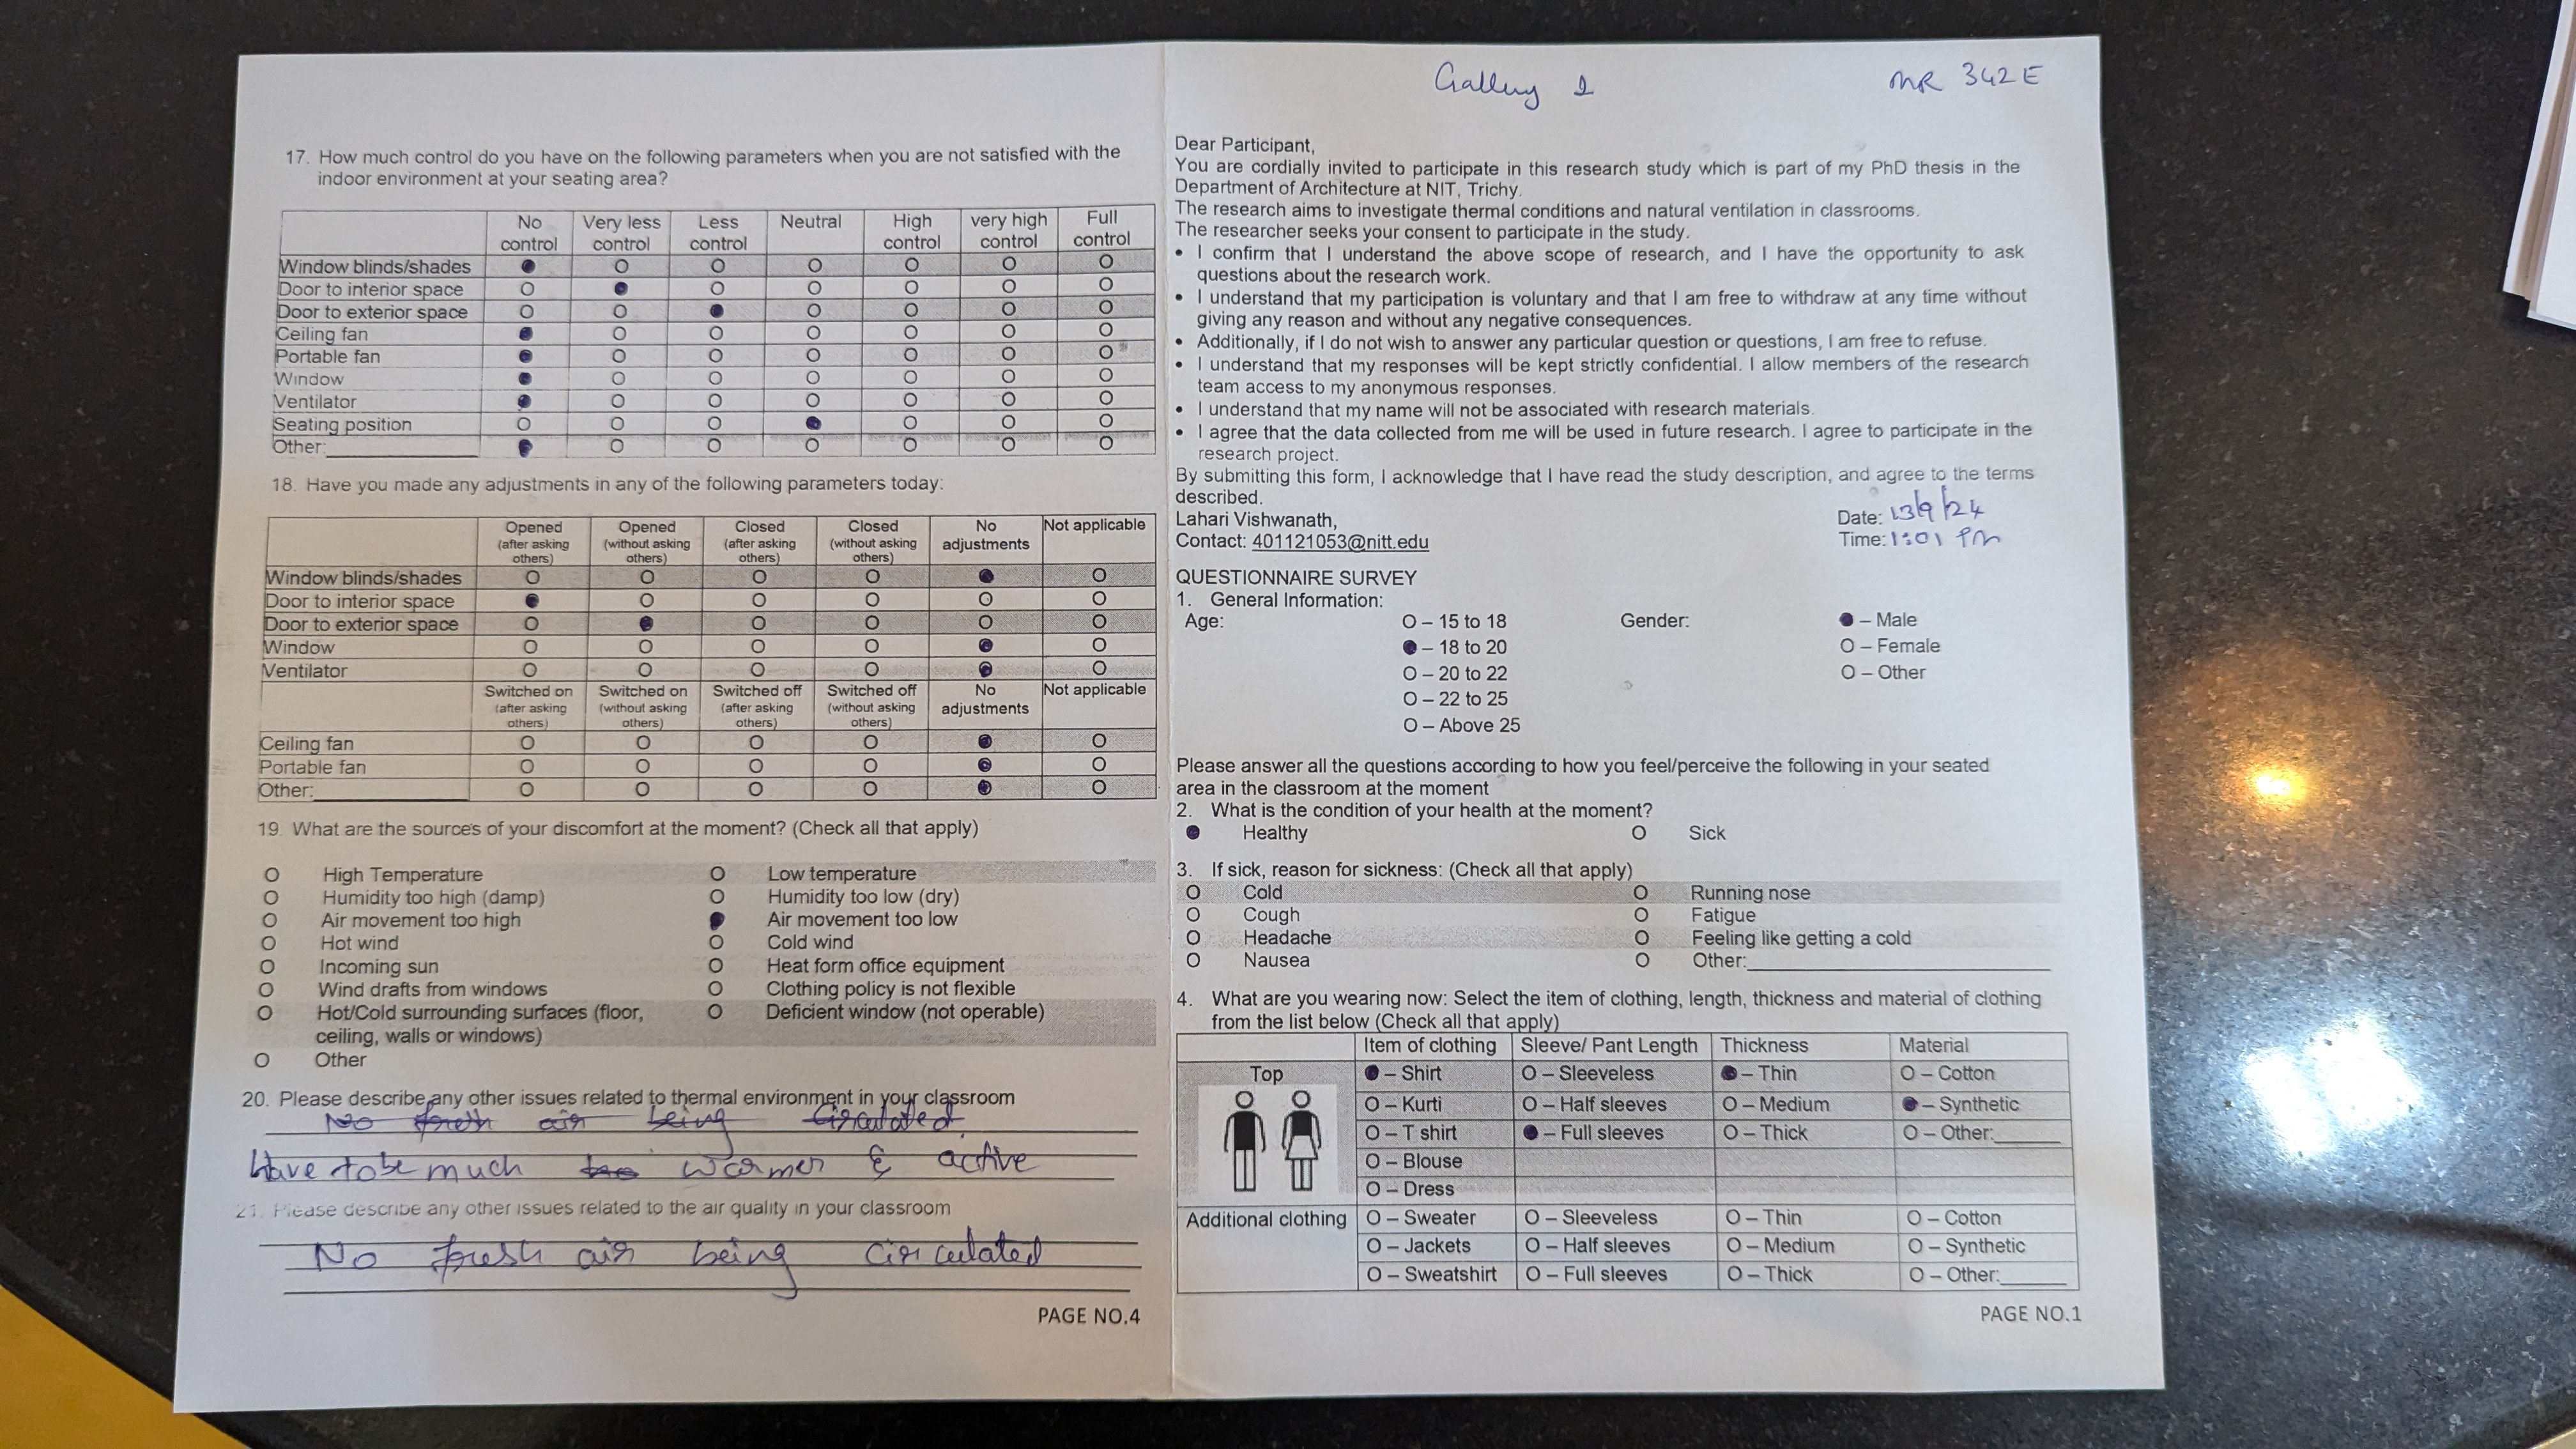 17. How much control do you have on the following parameters when you are not satisfied with the
indoor environment at your seating area?
No control Very less control Less control Neutral High control very high control Full control
Window blinds/shades ● O O O O O O
Door to interior space O ● O O O O O
Door to exterior space O O ● O O O O
Ceiling fan ● O O O O O O
Portable fan ● O O O O O O
Window ● O O O O O O
Ventilator ● O O O O O O
Seating position O O O ● O O O
Other: ● O O O O O O
18. Have you made any adjustments in any of the following parameters today:
Opened (after asking others) Opened (without asking others) Closed (after asking others) Closed (without asking others) No adjustments Not applicable
Window blinds/shades O O O O ● O
Door to interior space ● O O O O O
Door to exterior space O ● O O O O
Window O O O O ● O
Ventilator O O O O ● O
Switched on (after asking others) Switched on (without asking others) Switched off (after asking others) Switched off (without asking others) No adjustments Not applicable
Ceiling fan O O O O ● O
Portable fan O O O O ● O
Other: O O O O ● O
19. What are the sources of your discomfort at the moment? (Check all that apply)
O High Temperature O Low temperature
O Humidity too high (damp) O Humidity too low (dry)
O Air movement too high ● Air movement too low
O Hot wind O Cold wind
O Incoming sun O Heat form office equipment
O Wind drafts from windows O Clothing policy is not flexible
O Hot/Cold surrounding surfaces (floor, O Deficient window (not operable)
ceiling, walls or windows)
O Other
20. Please describe any other issues related to thermal environment in your classroom
No fresh air being circulated
Have to be much warmer & active
21. Please describe any other issues related to the air quality in your classroom
No fresh air being circulated
PAGE NO.4
Gallery 1 MR 342E
Dear Participant,
You are cordially invited to participate in this research study which is part of my PhD thesis in the
Department of Architecture at NIT, Trichy.
The research aims to investigate thermal conditions and natural ventilation in classrooms.
The researcher seeks your consent to participate in the study.
• I confirm that I understand the above scope of research, and I have the opportunity to ask
questions about the research work.
• I understand that my participation is voluntary and that I am free to withdraw at any time without
giving any reason and without any negative consequences.
• Additionally, if I do not wish to answer any particular question or questions, I am free to refuse.
• I understand that my responses will be kept strictly confidential. I allow members of the research
team access to my anonymous responses.
• I understand that my name will not be associated with research materials.
• I agree that the data collected from me will be used in future research. I agree to participate in the
research project.
By submitting this form, I acknowledge that I have read the study description, and agree to the terms
described.
Lahari Vishwanath, Date: 13/9/24
Contact: 401121053@nitt.edu Time: 1:01 PM
QUESTIONNAIRE SURVEY
1. General Information:
Age: O – 15 to 18 Gender: ● – Male
● – 18 to 20 O – Female
O – 20 to 22 O – Other
O – 22 to 25
O – Above 25
Please answer all the questions according to how you feel/perceive the following in your seated
area in the classroom at the moment
2. What is the condition of your health at the moment?
● Healthy O Sick
3. If sick, reason for sickness: (Check all that apply)
O Cold O Running nose
O Cough O Fatigue
O Headache O Feeling like getting a cold
O Nausea O Other:
4. What are you wearing now: Select the item of clothing, length, thickness and material of clothing
from the list below (Check all that apply)
Item of clothing Sleeve/ Pant Length Thickness Material
Top ● – Shirt O – Sleeveless ● – Thin O – Cotton
O – Kurti O – Half sleeves O – Medium ● – Synthetic
O – T shirt ● – Full sleeves O – Thick O – Other:
O – Blouse
O – Dress
Additional clothing O – Sweater O – Sleeveless O – Thin O – Cotton
O – Jackets O – Half sleeves O – Medium O – Synthetic
O – Sweatshirt O – Full sleeves O – Thick O – Other:
PAGE NO.1